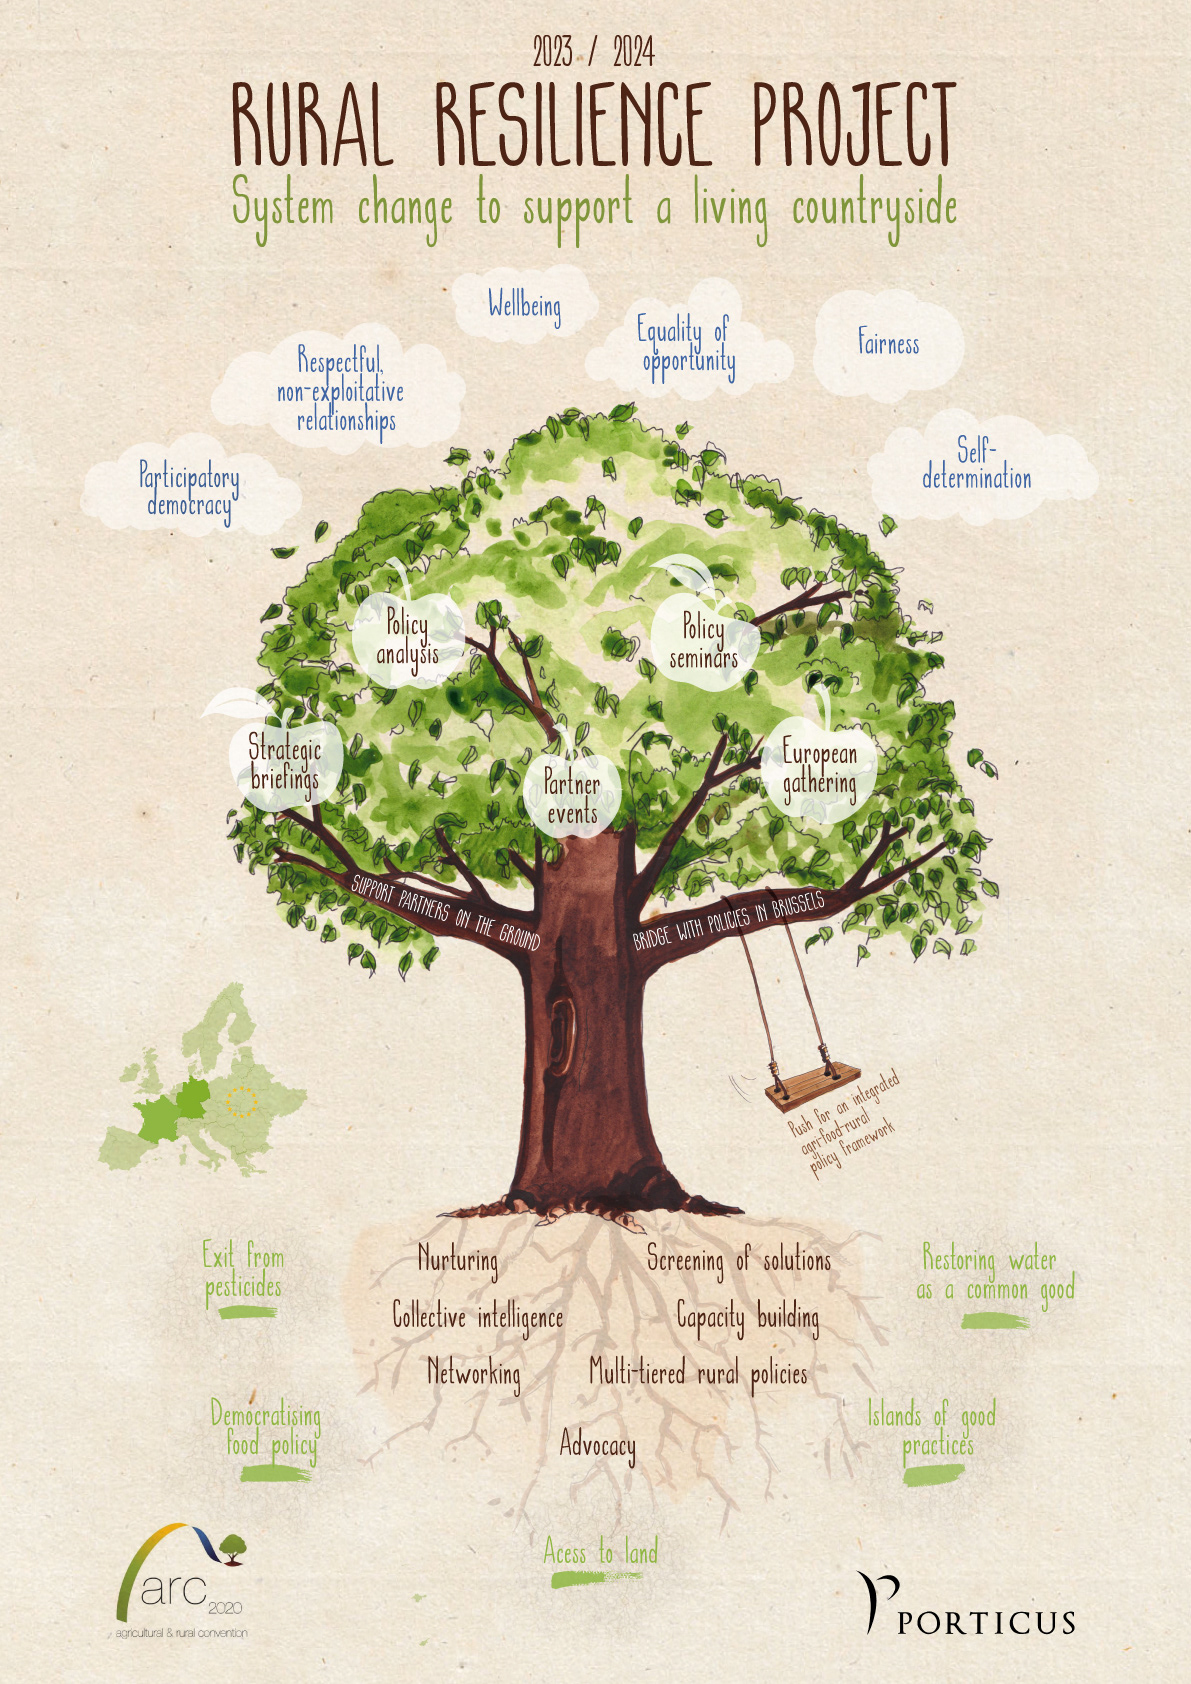 2023 / 2024
RURAL RESILIENCE PROJECT
System change to support a living countryside
Wellbeing
Equality of
opportunity
Fairness
Respectful,
non-exploitative
relationships
Self-
determination
Participatory
democracy
Policy
analysis
Policy
seminars
Strategic
briefings
Partner
events
European
gathering
SUPPORT PARTNERS ON THE GROUND
BRIDGE WITH POLICIES IN BRUSSELS
Push for an integrated
agri-food-rural
policy framework
Exit from
pesticides
Nurturing
Screening of solutions
Restoring water
as a common good
Collective intelligence
Capacity building
Networking
Multi-tiered rural policies
Democratising
food policy
Advocacy
Islands of good
practices
Acess to land
arc
2020
agricultural & rural convention
PORTICUS